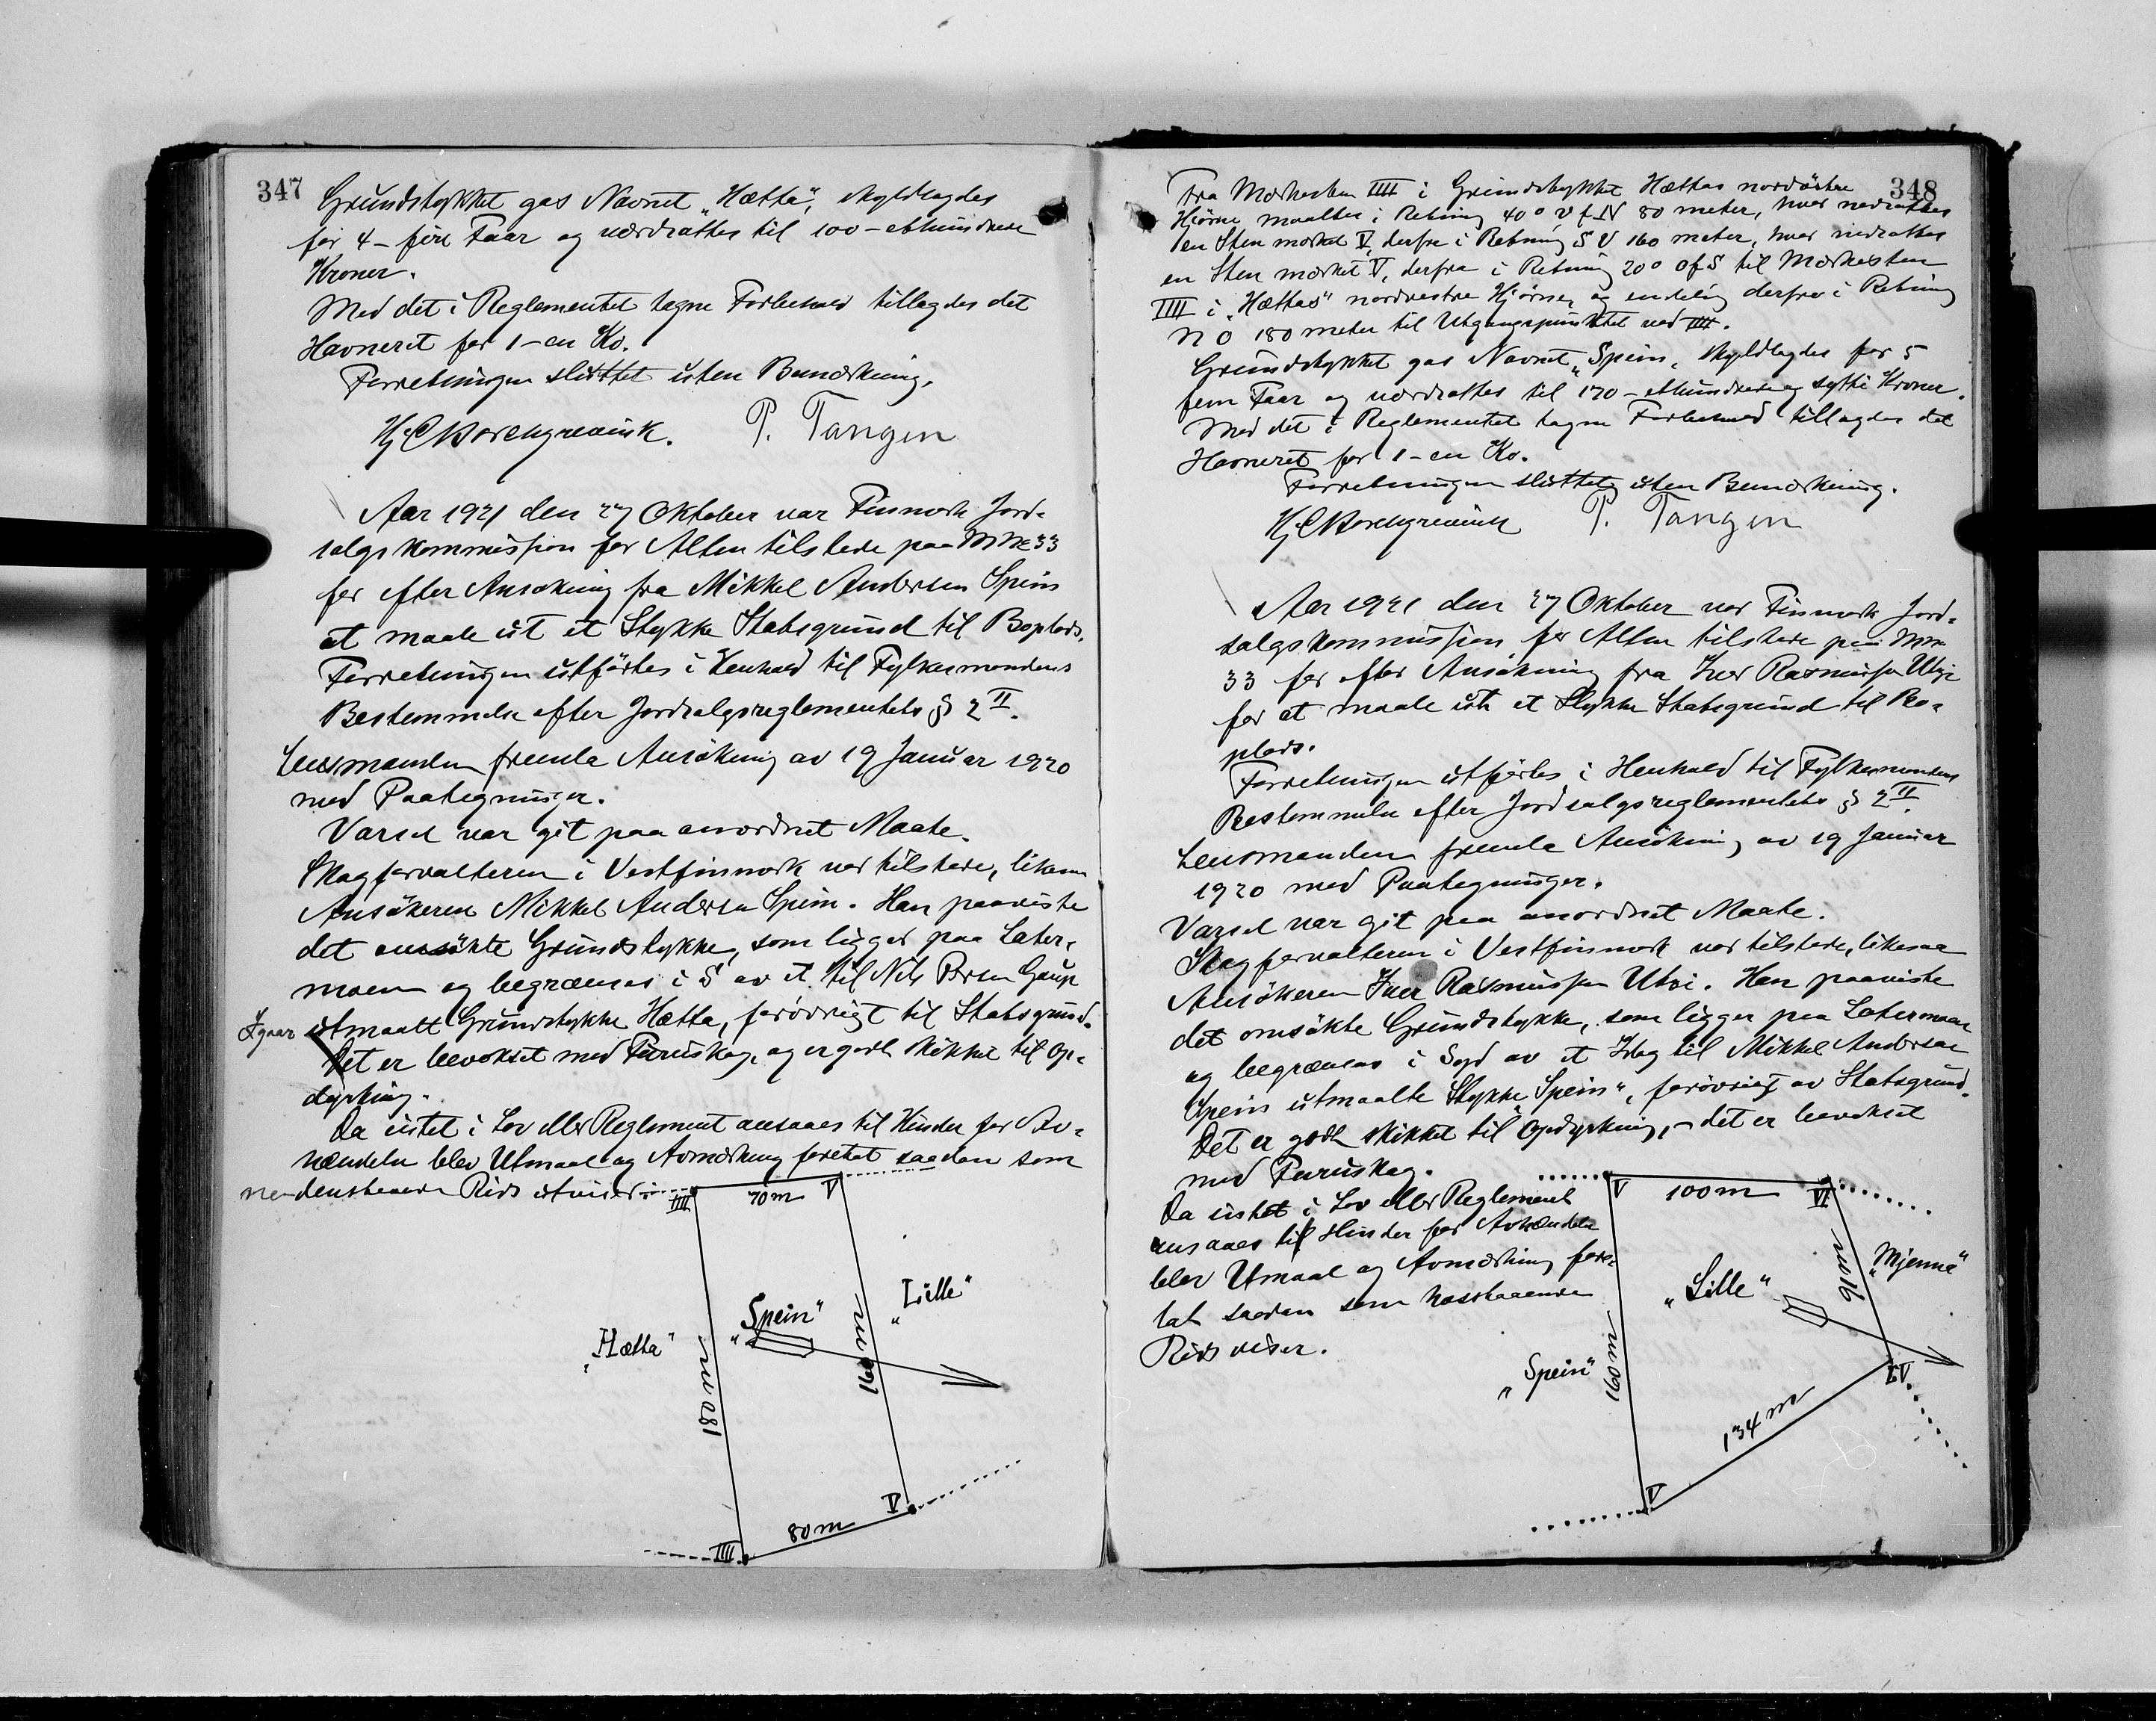 347
Grundstykket gas Navnet „Hætta", skyldlagdes
for 4 – fire Faar og værdsattes til 100 – ethundrede
Kroner.
Med det i Reglementet tagne Forbehold tillagdes det
Havneret for 1 – en Ko.
Forretningen sluttet uten Bemærkning.
Hj C Borchgrevink. P. Tangen
Aar 1921 den 27 Oktober var Finmark Jord-
salgskommission for Alten tilstede paa MNr 33
for efter Ansøkning fra Mikkel Andersen Spein
at maale ut et Stykke Statsgrund til Boplads.
Forretningen utførtes i Henhold til Fylkesmandens
Bestemmelse efter Jordsalgsreglementets § 2 II.
Lensmanden fremla Ansøkning av 19 Januar 1920
med Paategninger.
Varsel var git paa anordnet Maate.
Skogforvalteren i Vestfinmark var tilstede, likesaa
Ansøkeren Mikkel Andersen Spein. Han paaviste
det ansøkte Grundstykke, som ligger paa Later-
moen og begrænses i S av et til Nils Persen Gaup
Igaar utmaalt Grundstykke Hætta, forøvrigt til Statsgrund.
Det er bevokset med Furuskog, og er godt skikket til Op-
dyrking.
Da intet i Lov eller Reglement ansaaes til Hinder for Av-
hændelse blev Utmaal og Avmerkning foretat saadan som
nedenstaaende Rids utviser:
IIII 70 m V
„Hætta" 180 m „Spein" 160 m „Lille"
IIII 80 m V
348
Fra Merkesten IIII i Grundstykket Hættas nordöstre
Hjörne maaltes i Retning 40° V f N 80 meter, hvor nedsattes
en Sten merket V, derfra i Retning S V 160 meter, hvor nedsattes
en Sten merket V, derfra i Retning 20° O f S til Merkesten
IIII i „Hættas" nordvestre Hjörne, og endelig derfra i Retning
N O 180 meter til Utgangspunktet ved IIII.
Grundstykket gas Navnet „Spein, skyldlagdes for 5
fem Faar og værdsattes til 170 – ethundrede og sytti Kroner.
Med det i Reglementet tagne Forbehold tillagdes det
Havneret for 1 – en Ko.
Forretningen sluttet uten Bemærkning.
Hj C Borchgrevink P. Tangen
Aar 1921 den 27 Oktober var Finmark Jord-
salgskommission for Alten tilstede paa MNr
33 for efter Ansøkning fra Iver Rasmussen Utsi
for at maale ut et Stykke Statsgrund til Bo-
plads.
Forretningen utførtes i Henhold til Fylkesmandens
Bestemmelse efter Jordsalgsreglementets § 2 II.
Lensmanden fremla Ansøkning av 19 Januar
1920 med Paategninger.
Varsel var git paa anordnet Maate.
Skogforvalteren i Vestfinmark var tilstede, likesaa
Ansøkeren Iver Rasmussen Utsi. Han paaviste
det omsøkte Grundstykke, som ligger paa Latermoen
og begrænses i Syd av et Idag til Mikkel Andersen
Spein utmaalte Stykke „Spein", forøvrigt av Statsgrund.
Det er godt skikket til Opdyrkning, – det er bevokset
med Furuskog.
Da intet i Lov eller Reglement
ansaaes til Hinder for Avhændelse
blev Utmaal og Avmerkning fore-
tat saadan som hosstaaende
Rids viser.
V 100 m VI
„Spein" 160 m „Lille" 91 m „Mjenne"
134 m LV
V